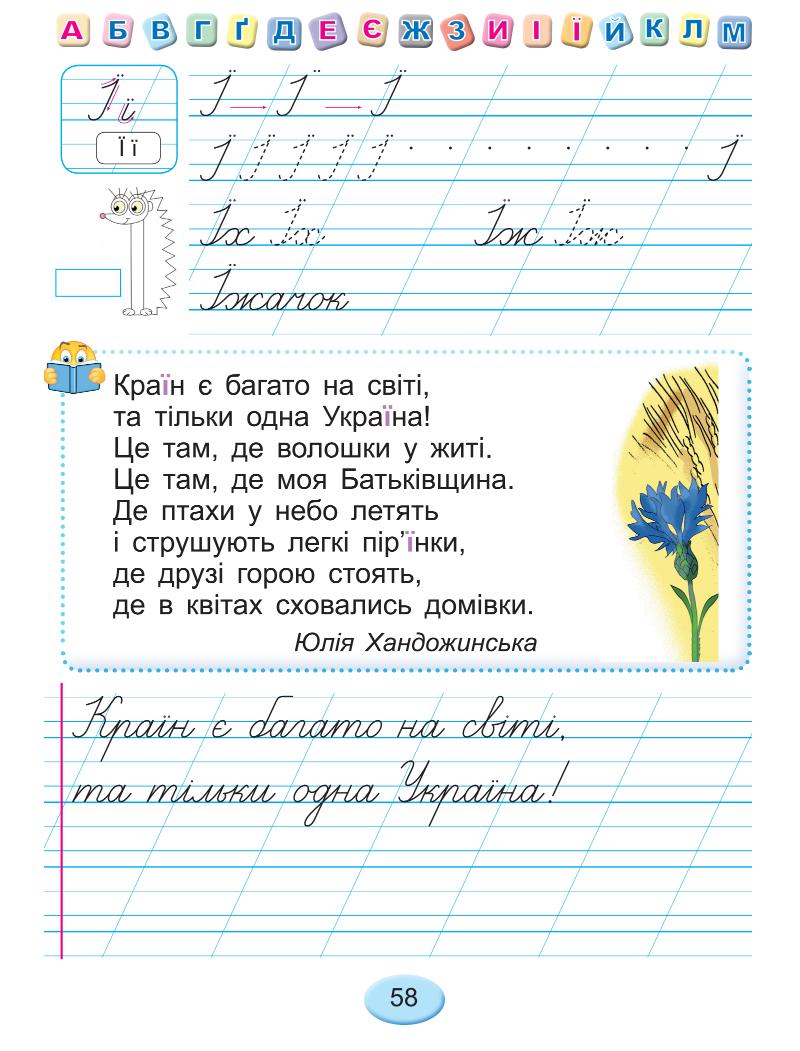 А Б В Г Ґ Д Е Є Ж З И І Ї Й К Л М
Ї ї
Ї ї
Ї Ї Ї
Ї Ї Ї Ї Ї Ї
Їх Їх Їж Їж
Їжачок
Країн є багато на світі,
та тільки одна Україна!
Це там, де волошки у житі.
Це там, де моя Батьківщина.
Де птахи у небо летять
і струшують легкі пір’їнки,
де друзі горою стоять,
де в квітах сховались домівки.
Юлія Хандожинська
Країн є багато на світі,
та тільки одна Україна!
58